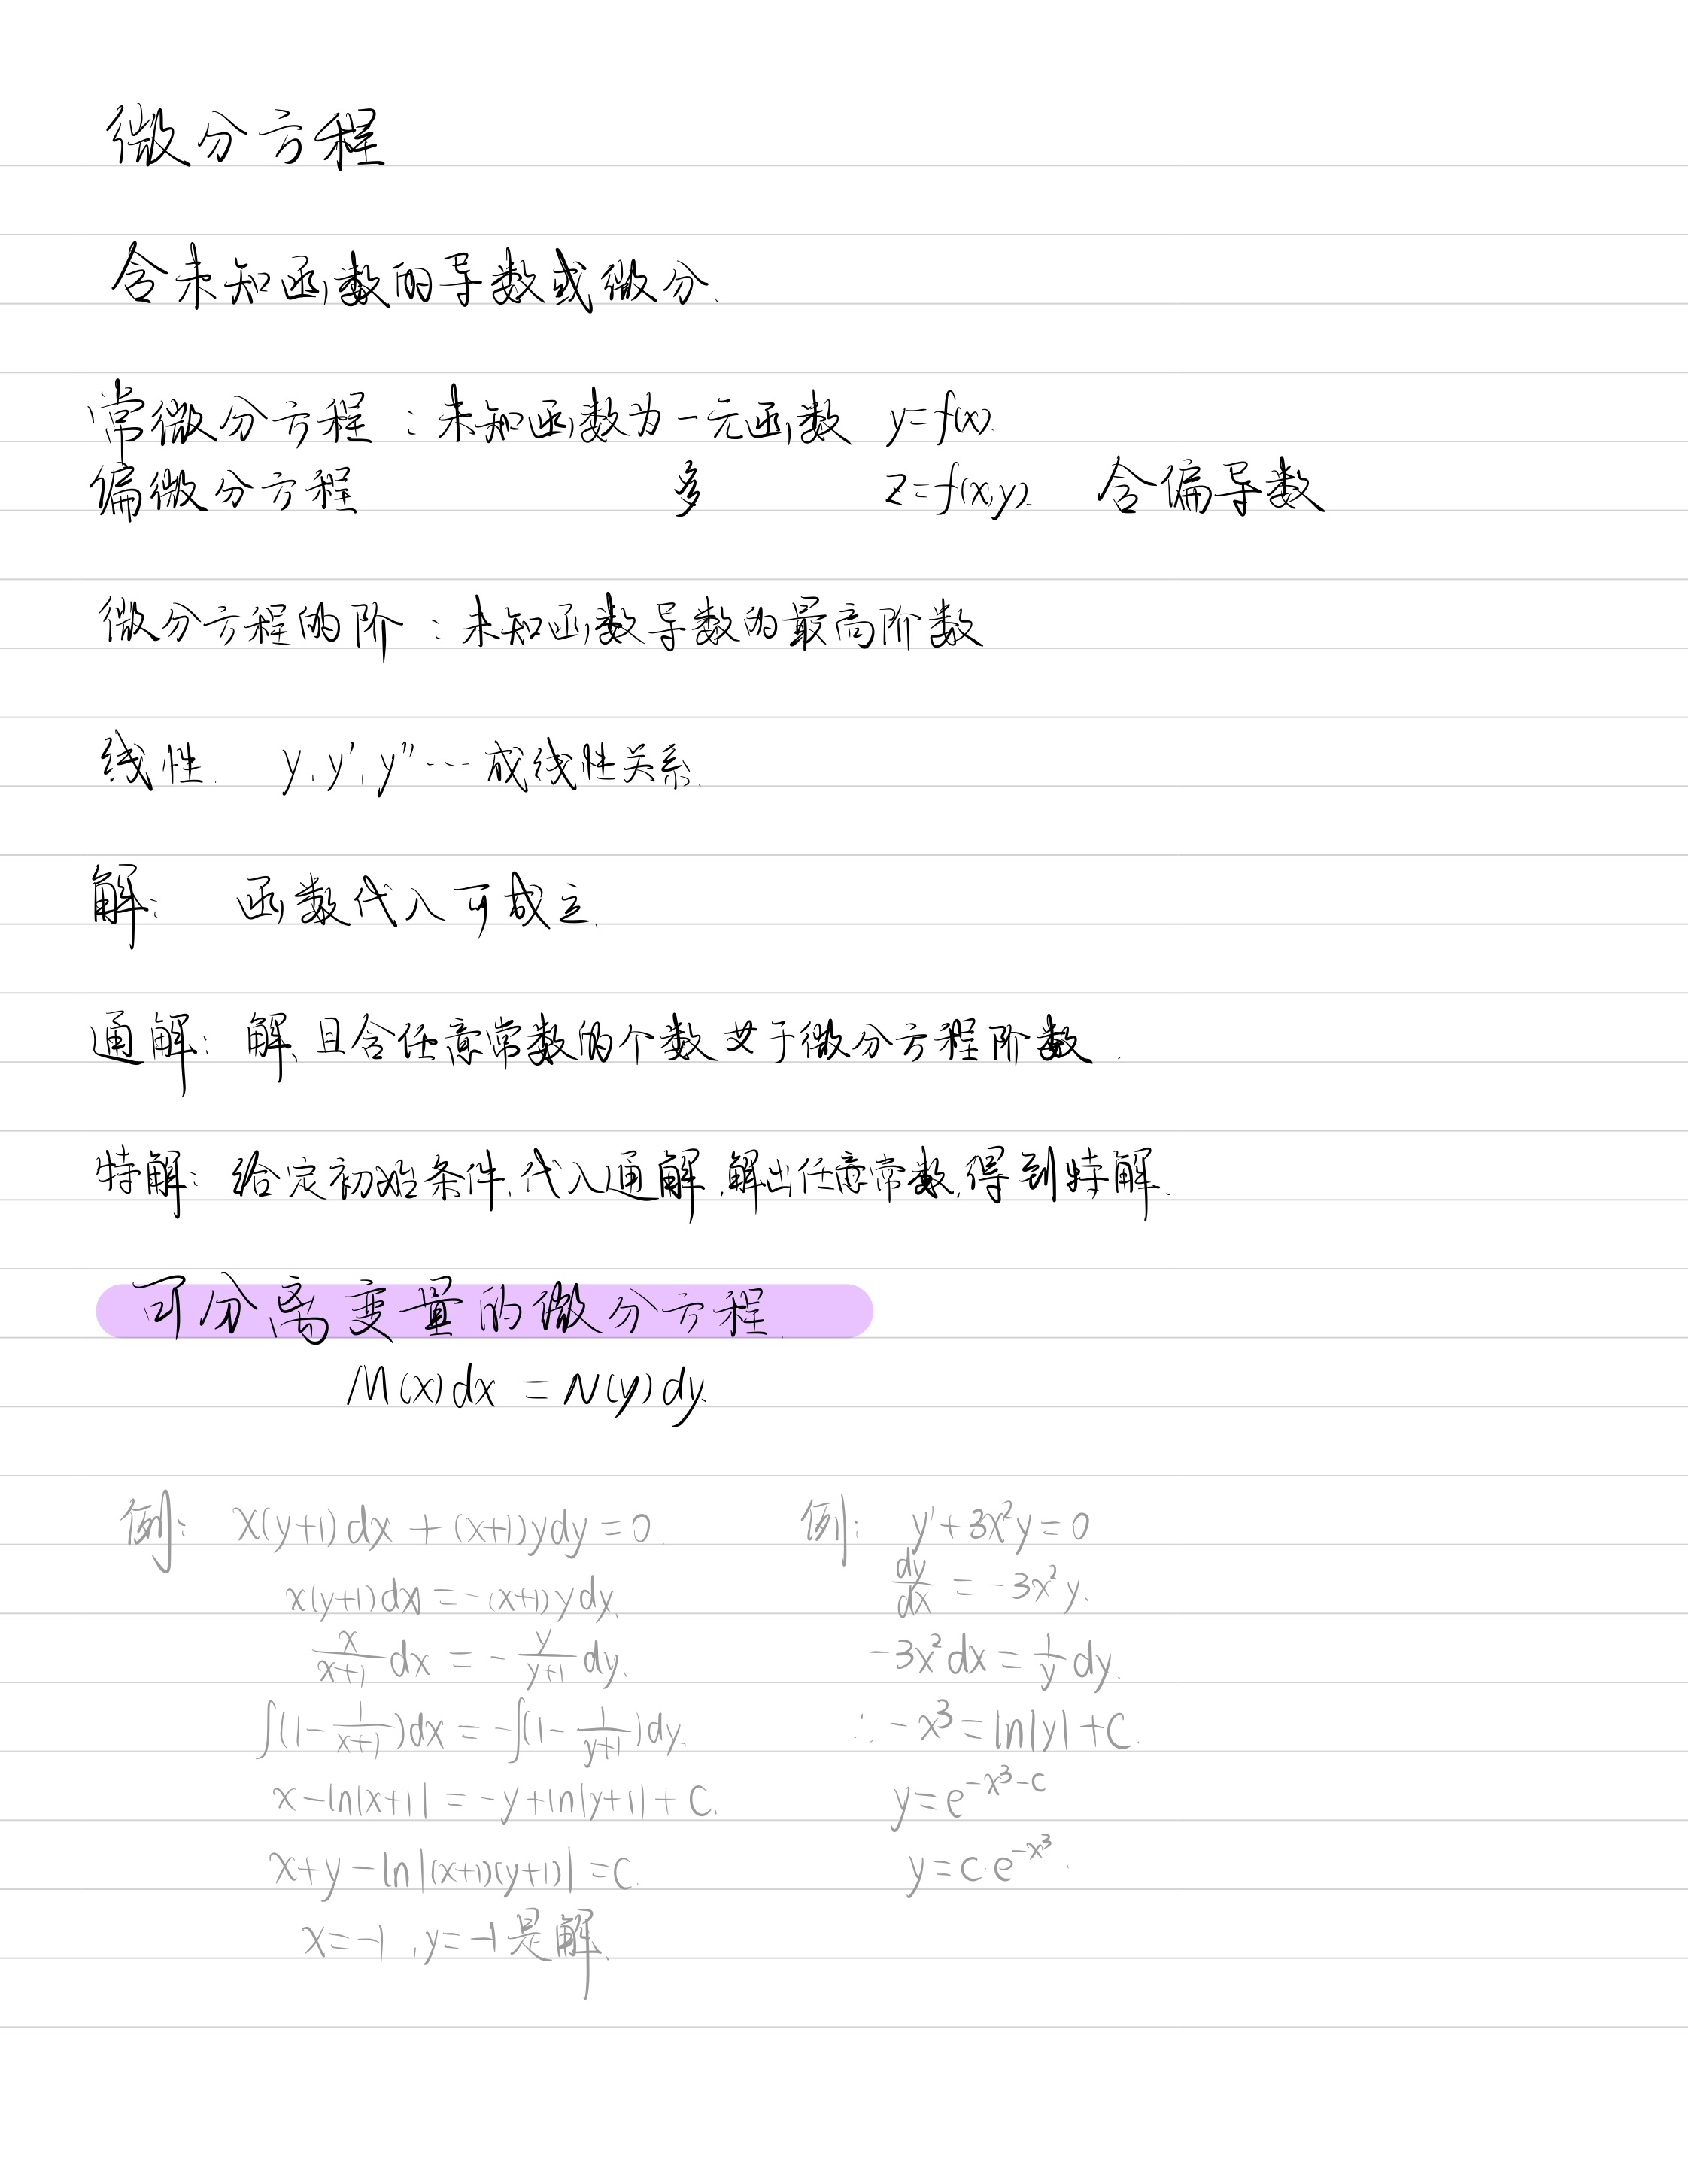 微分方程
含未知函数的导数或微分.
常微分方程：未知函数为一元函数 y=f(x).
偏微分方程 多 z=f(x,y). 含偏导数
微分方程的阶：未知函数导数的最高阶数
线性. y, y', y''…成线性关系.
解： 函数代入可成立.
通解：解、且含任意常数的个数等于微分方程阶数.
特解：给定初始条件,代入通解,解出任意常数,得到特解.
可分离变量的微分方程.
M(x)dx = N(y)dy.
例： x(y+1)dx + (x+1)ydy = 0.
x(y+1)dx = -(x+1)ydy.
x/(x+1) dx = - y/(y+1) dy.
∫(1 - 1/(x+1))dx = -∫(1 - 1/(y+1))dy.
x - ln|x+1| = -y + ln|y+1| + C.
x+y - ln|(x+1)(y+1)| = C.
x=-1, y=-1是解.
例： y' + 3x²y = 0
dy/dx = -3x²y.
-3x²dx = 1/y dy.
∴ -x³ = ln|y| + C.
y = e^(-x³-C)
y = C·e^(-x³).